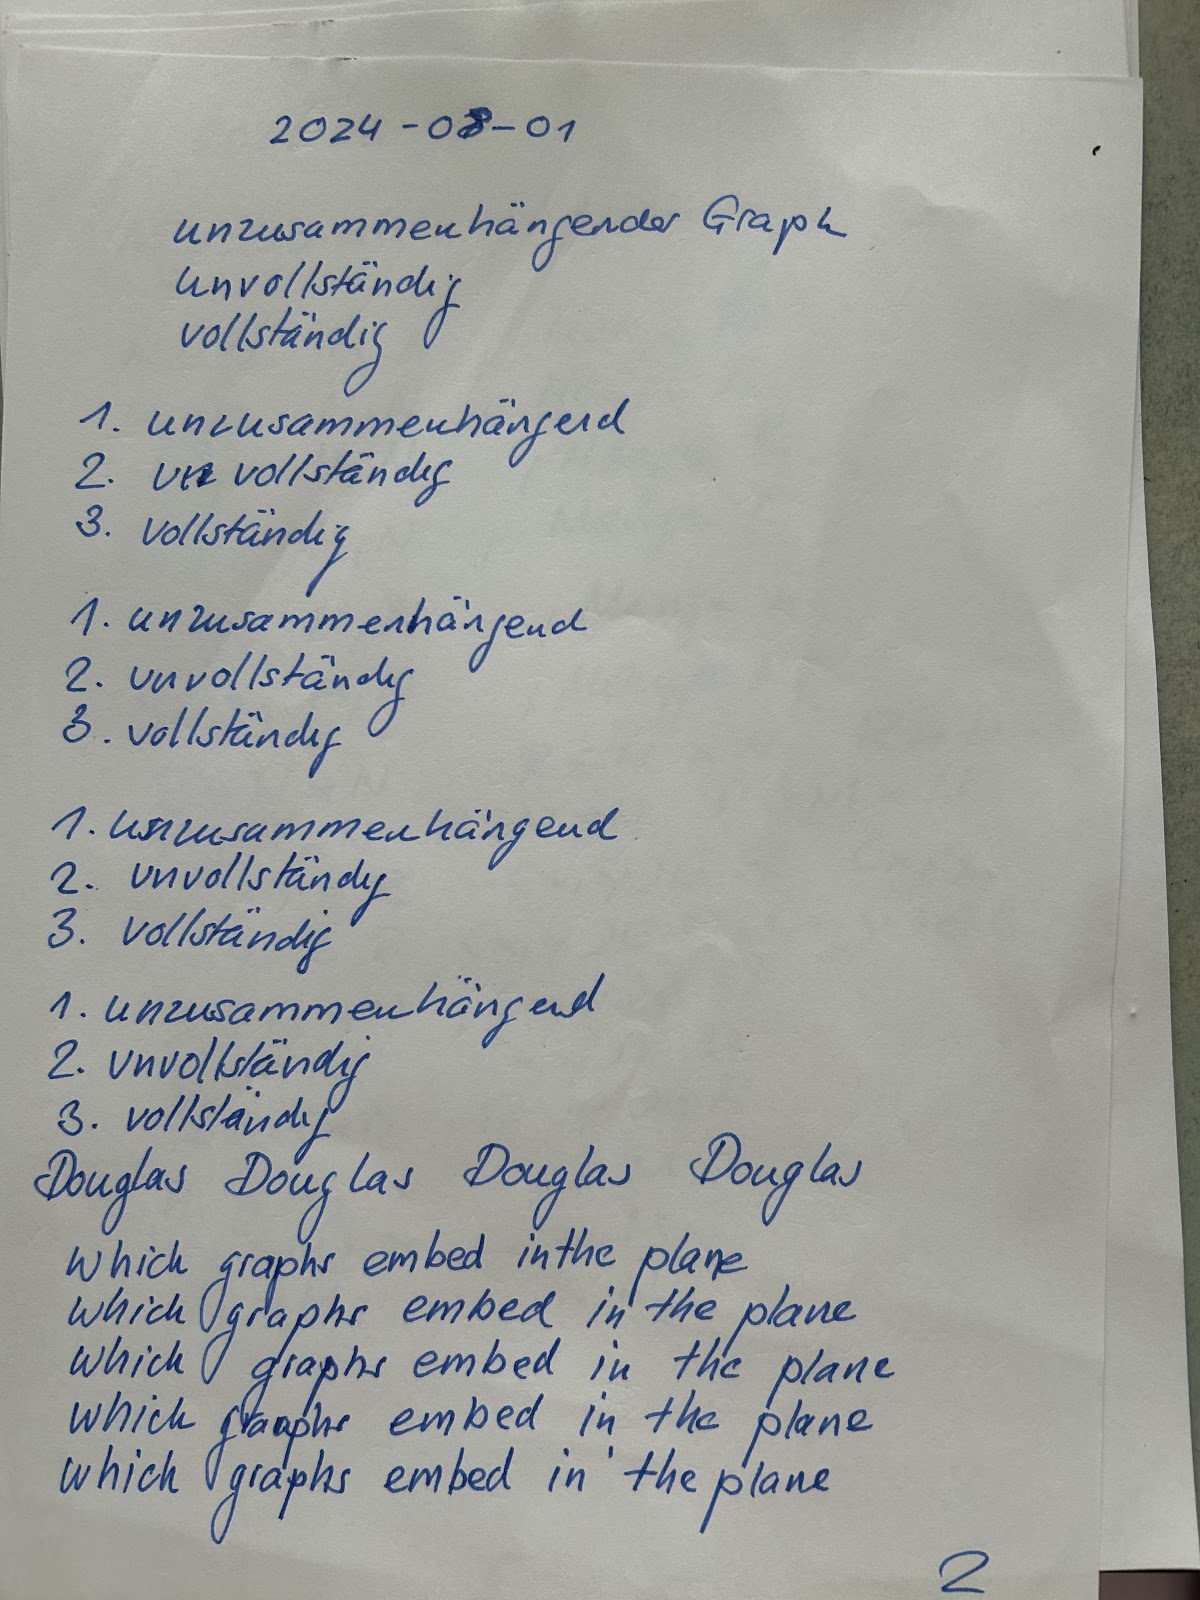 2024-08-01
unzusammenhängender Graph
unvollständig
vollständig
1. unzusammenhängend
2. unvollständig
3. vollständig
1. unzusammenhängend
2. unvollständig
3. vollständig
1. unzusammenhängend
2. unvollständig
3. vollständig
1. unzusammenhängend
2. unvollständig
3. vollständig
Douglas Douglas Douglas Douglas
which graphs embed in the plane
which graphs embed in the plane
which graphs embed in the plane
which graphs embed in the plane
which graphs embed in the plane
2